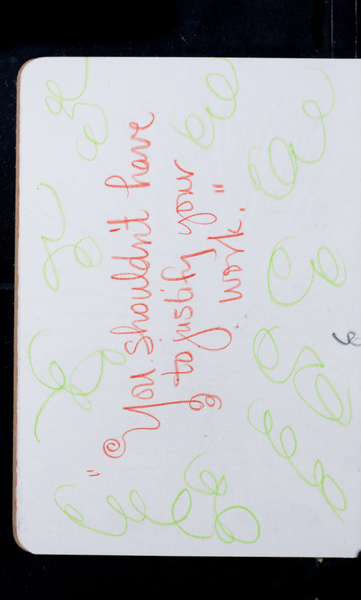 "You shouldn't have
to justify your
work."